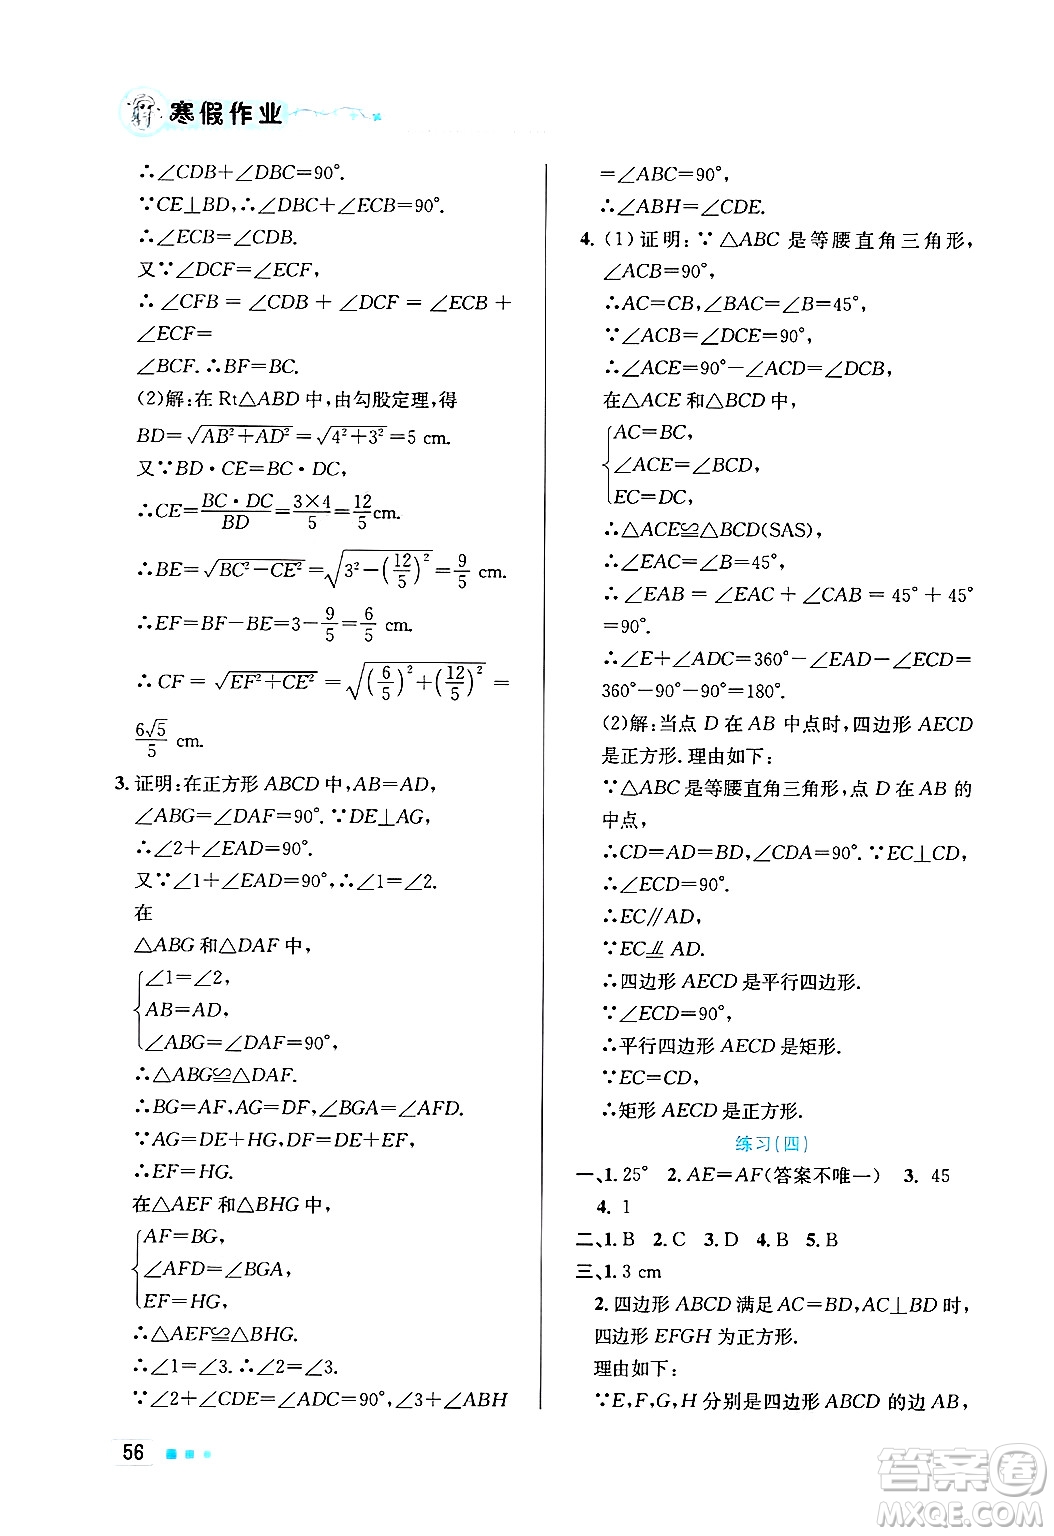 寒假作业
∴∠CDB+∠DBC=90°.
∵CE⊥BD,∴∠DBC+∠ECB=90°.
∴∠ECB=∠CDB.
又∵∠DCF=∠ECF,
∴∠CFB=∠CDB+∠DCF=∠ECB+
∠ECF=
∠BCF.∴BF=BC.
(2)解:在Rt△ABD中,由勾股定理,得
BD=√(AB²+AD²)=√(4²+3²)=5 cm.
又∵BD·CE=BC·DC,
∴CE=(BC·DC)/BD=(3×4)/5=12/5 cm.
∴BE=√(BC²-CE²)=√(3²-(12/5)²)=9/5 cm.
∴EF=BF-BE=3-9/5=6/5 cm.
∴CF=√(EF²+CE²)=√((6/5)²+(12/5)²)=
6√5/5 cm.
3.证明:在正方形ABCD中,AB=AD,
∠ABG=∠DAF=90°.∵DE⊥AG,
∴∠2+∠EAD=90°.
又∵∠1+∠EAD=90°,∴∠1=∠2.
在
△ABG和△DAF中,
∠1=∠2,
AB=AD,
∠ABG=∠DAF=90°,
∴△ABG≌△DAF.
∴BG=AF,AG=DF,∠BGA=∠AFD.
∵AG=DE+HG,DF=DE+EF,
∴EF=HG.
在△AEF和△BHG中,
AF=BG,
∠AFD=∠BGA,
EF=HG,
∴△AEF≌△BHG.
∴∠1=∠3.∴∠2=∠3.
∵∠2+∠CDE=∠ADC=90°,∠3+∠ABH
=∠ABC=90°,
∴∠ABH=∠CDE.
4.(1)证明:∵△ABC是等腰直角三角形,
∠ACB=90°,
∴AC=CB,∠BAC=∠B=45°,
∵∠ACB=∠DCE=90°,
∴∠ACE=90°-∠ACD=∠DCB,
在△ACE和△BCD中,
AC=BC,
∠ACE=∠BCD,
EC=DC,
∴△ACE≌△BCD(SAS),
∴∠EAC=∠B=45°,
∴∠EAB=∠EAC+∠CAB=45°+45°
=90°.
∴∠E+∠ADC=360°-∠EAD-∠ECD=
360°-90°-90°=180°.
(2)解:当点D在AB中点时,四边形AECD
是正方形.理由如下:
∵△ABC是等腰直角三角形,点D在AB的
中点,
∴CD=AD=BD,∠CDA=90°.∵EC⊥CD,
∴∠ECD=90°.
∴EC∥AD,
∵EC⫫AD.
∴四边形AECD是平行四边形.
∵∠ECD=90°,
∴平行四边形AECD是矩形.
∵EC=CD,
∴矩形AECD是正方形.
练习(四)
一、1.25° 2.AE=AF(答案不唯一) 3.45
4.1
二、1.B 2.C 3.D 4.B 5.B
三、1.3 cm
2.四边形ABCD满足AC=BD,AC⊥BD时,
四边形EFGH为正方形.
理由如下:
∵E,F,G,H分别是四边形ABCD的边AB,
56
答案圈
MXQE.COM